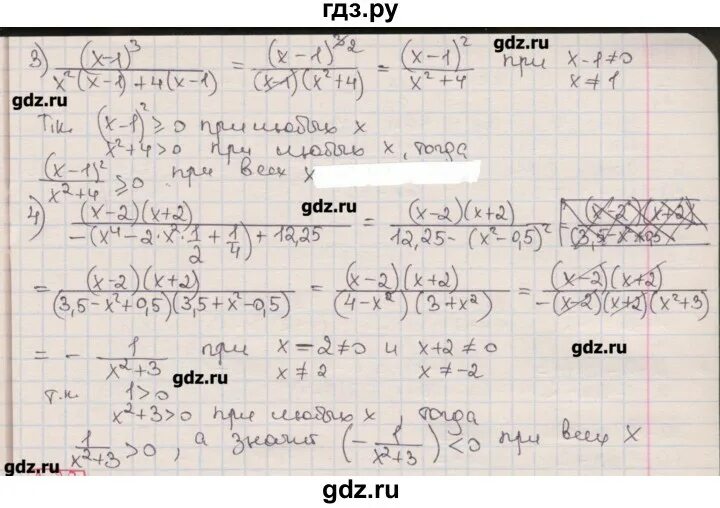 гдз.ру
3) (x-1)³ / (x²(x-1)+4(x-1)) = (x-1)³² / ((x-1)(x²+4)) = (x-1)² / (x²+4) при x-1≠0
x≠1
gdz.ru
gdz.ru
Т.к. (x-1)² ≥ 0 при любых x
x²+4>0 при любых x, тогда
(x-1)² / (x²+4) ≥ 0 при всех x
gdz.ru
4) (x-2)(x+2) / (-(x⁴-2·x²·1/2+1/4)+12,25) = (x-2)(x+2) / (12,25-(x²-0,5)²) =
= (x-2)(x+2) / ((3,5-x²+0,5)(3,5+x²-0,5)) = (x-2)(x+2) / ((4-x²)(3+x²)) = (x-2)(x+2) / (-(x-2)(x+2)(x²+3))
= - 1 / (x²+3) при x-2≠0 и x+2≠0
x≠2 x≠-2
gdz.ru
gdz.ru
т.к. 1>0
x²+3>0 при любых x, тогда
1 / (x²+3) >0, а значит (- 1 / (x²+3)) <0 при всех x
gdz.ru
gdz.ru
gdz.ru